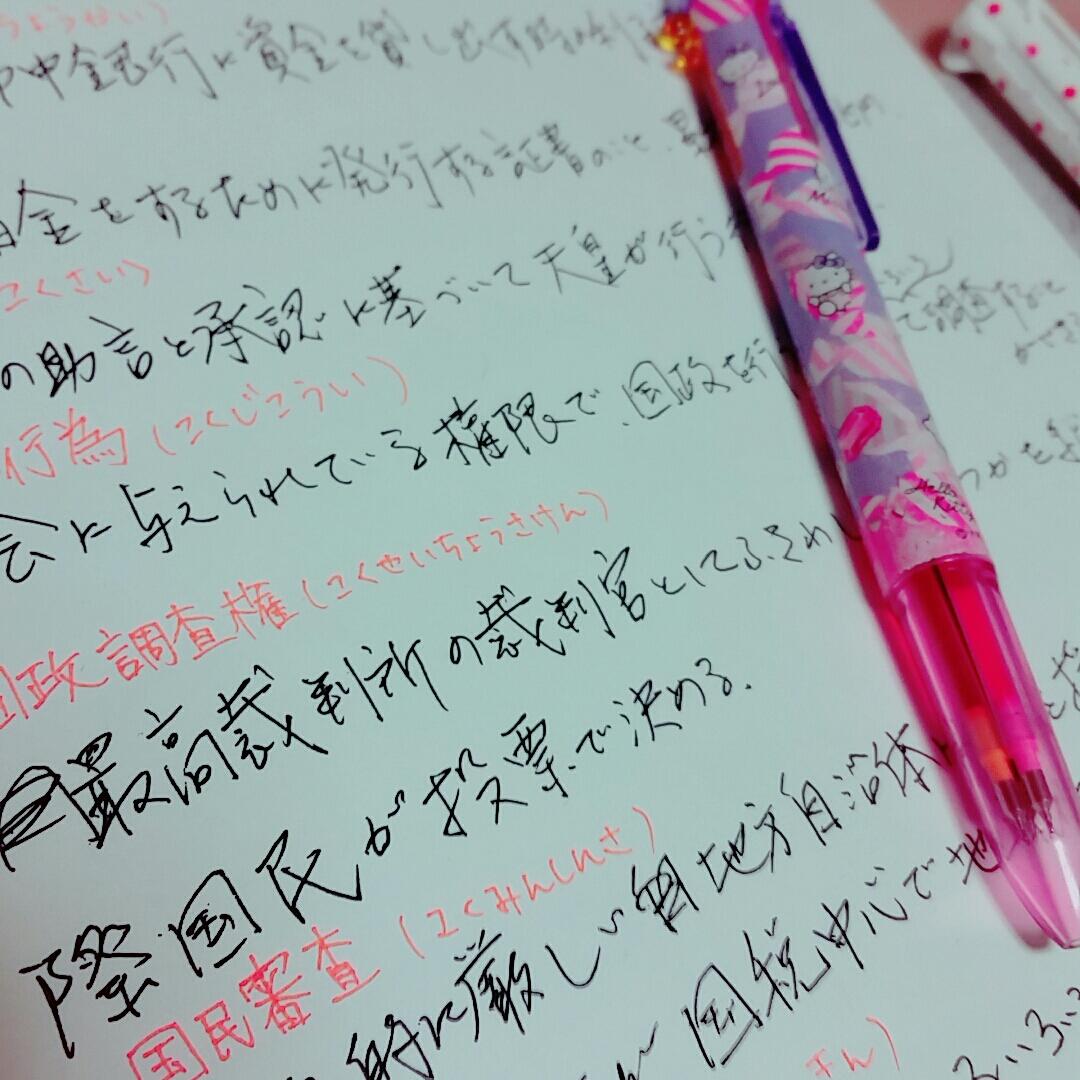 ょうせい)
中銀行に資金を貸し出す時の利
金をするために発行する証書のこと.
こくさい)
の助言と承認に基づいて天皇が行う
行為(こくじこうい)
会に与えられている権限で、国政を行 て調査すること
ができる
国政調査権(こくせいちょうさけん)
最高裁判所の裁判官としてふさわし つかを
際国民が投票で決める.
国民審査(こくみんしんさ)
的に厳しい 地方自治体
国税中心で地
きん)
Hello Kitty